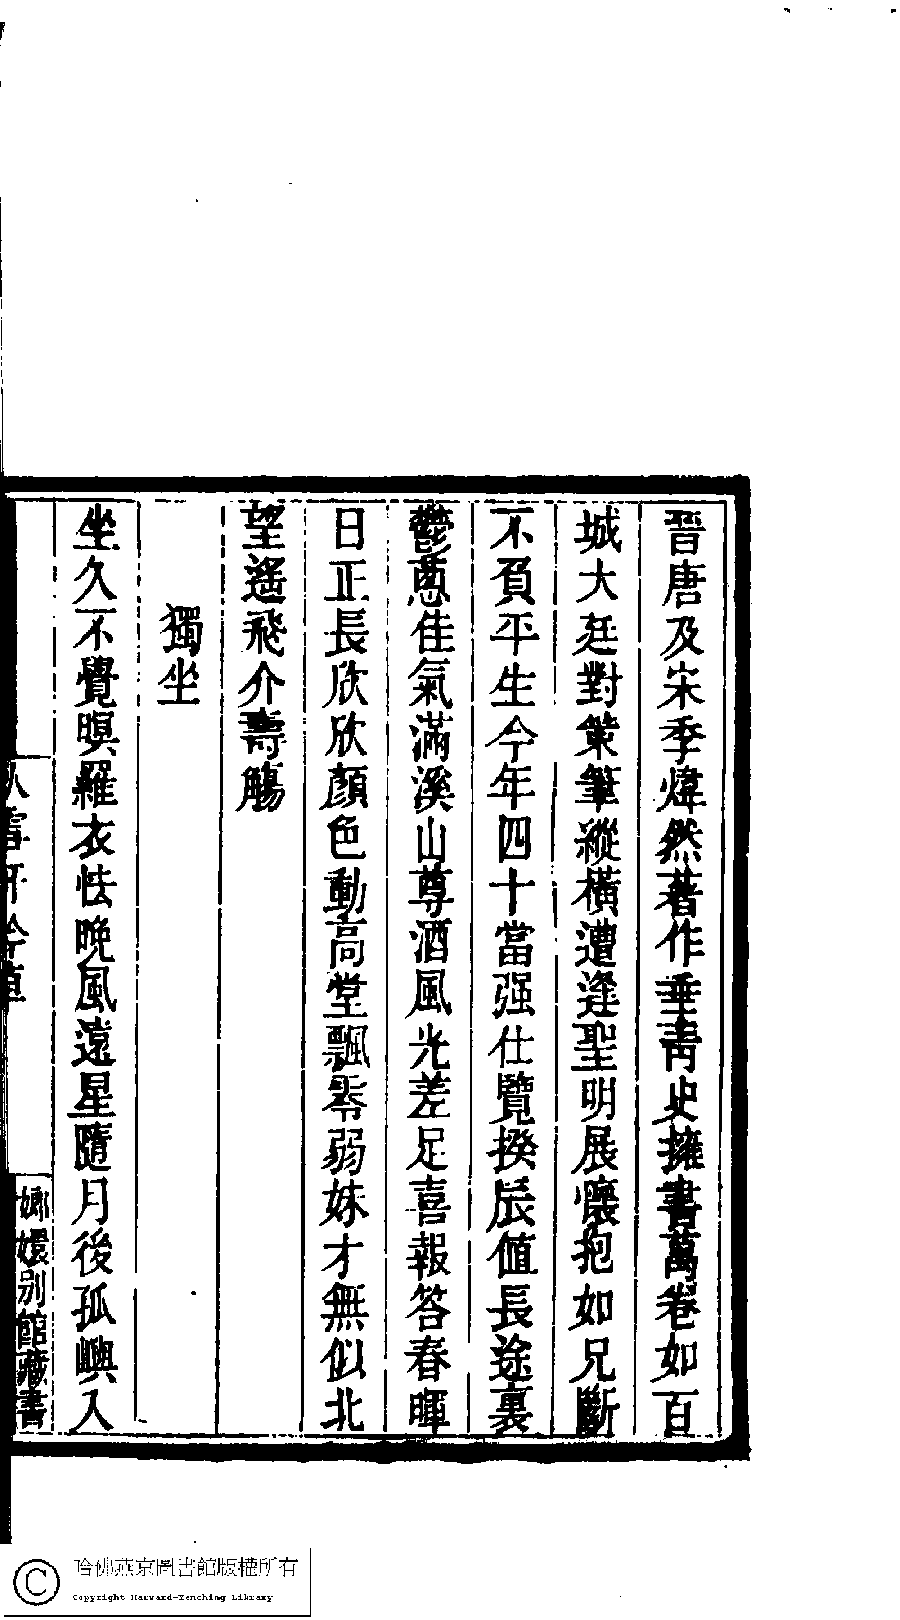 晉唐及宋季煒然著作垂靑史擁書萬卷如百
城大廷對策筆縱橫遭逢聖明展懷抱如兄斷
不負平生今年四十當强仕覽揆辰値長途裏
鬱蔥佳氣滿溪山尊酒風光差足喜報答春暉
日正長欣欣顏色動高堂飄零弱妹才無似北
望遙飛介壽觴
獨坐
坐久不覺暝羅衣怯晚風遠星隨月後孤嶼入
嫏嬛別館藏書
哈佛燕京圖書館版權所有
Copyright Harvard-Yenching Library